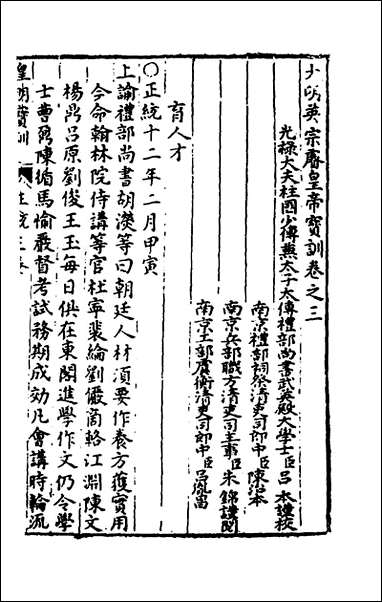 大明英宗睿皇帝寶訓卷之三
光祿大夫柱國少傅兼太子太傅禮部尚書武英殿大學士臣呂本謹校
南京禮部祠祭清吏司郎中臣陳治本
南京兵部職方清吏司主事臣朱錦謹閱
南京工部虞衡清吏司郎中臣呂胤昌
育人才
○正統十二年二月甲寅
上諭禮部尚書胡濙等曰朝廷人材須要作養方獲實用
今命翰林院侍講等官杜寧裴綸劉儼商輅江淵陳文
楊鼎呂原劉俊王玉每日俱在東閣進學作文仍令學
士曹鼐陳循馬愉嚴督考試務期成効凡會講時輪流
皇明寶訓